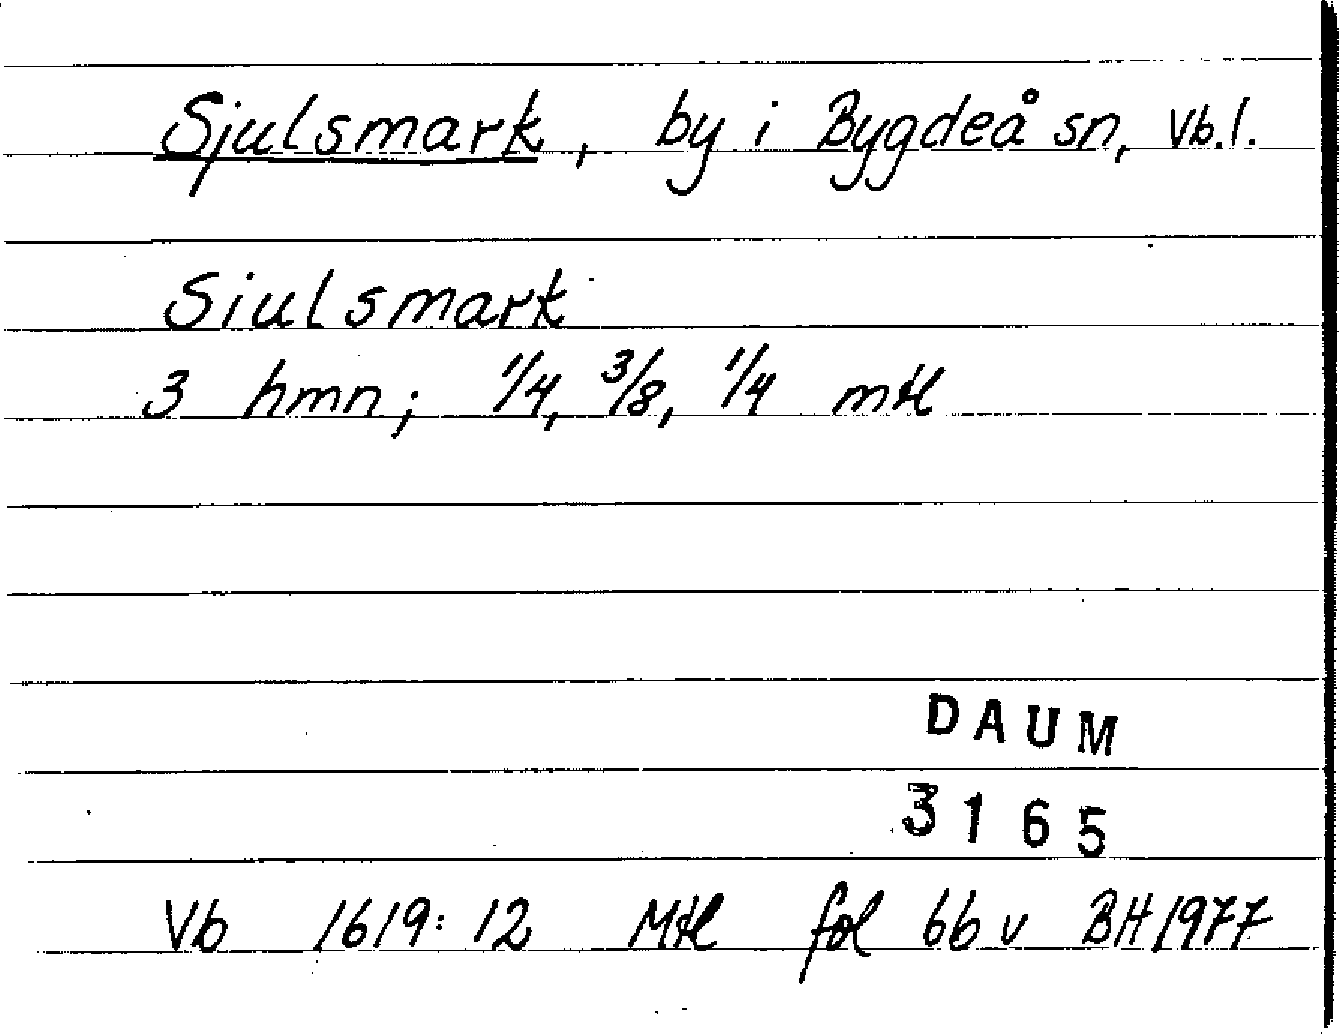 Sjulsmark, by i Bygdeå sn, Vb.l.
Siulsmark
3 hmn; 1/4, 3/8, 1/4 mtl
DAUM
3165
Vb 1619:12 Mtl fol 66 v BH 1977